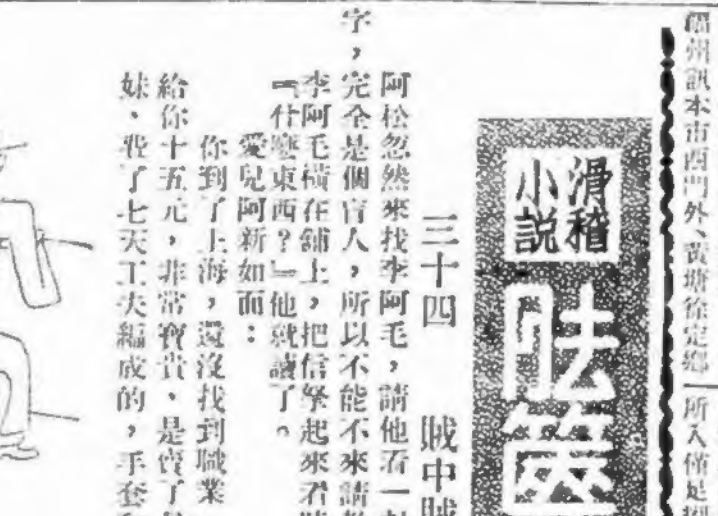 州訊本市西門外、黃塘徐定鄉
所入僅足
滑稽
小說
三十四 賊中賊
阿松忽然來找李阿毛，請他看一封
字，完全是個盲人，所以不能不來請
李阿毛橫在舖上，把信拏起來看
『什麼東西？』他就讀了。
愛兒阿新如面：
你到了上海，還沒找到職業
給你十五元，非常寶貴，是賣了
妹、費了七天工夫編成的，手套